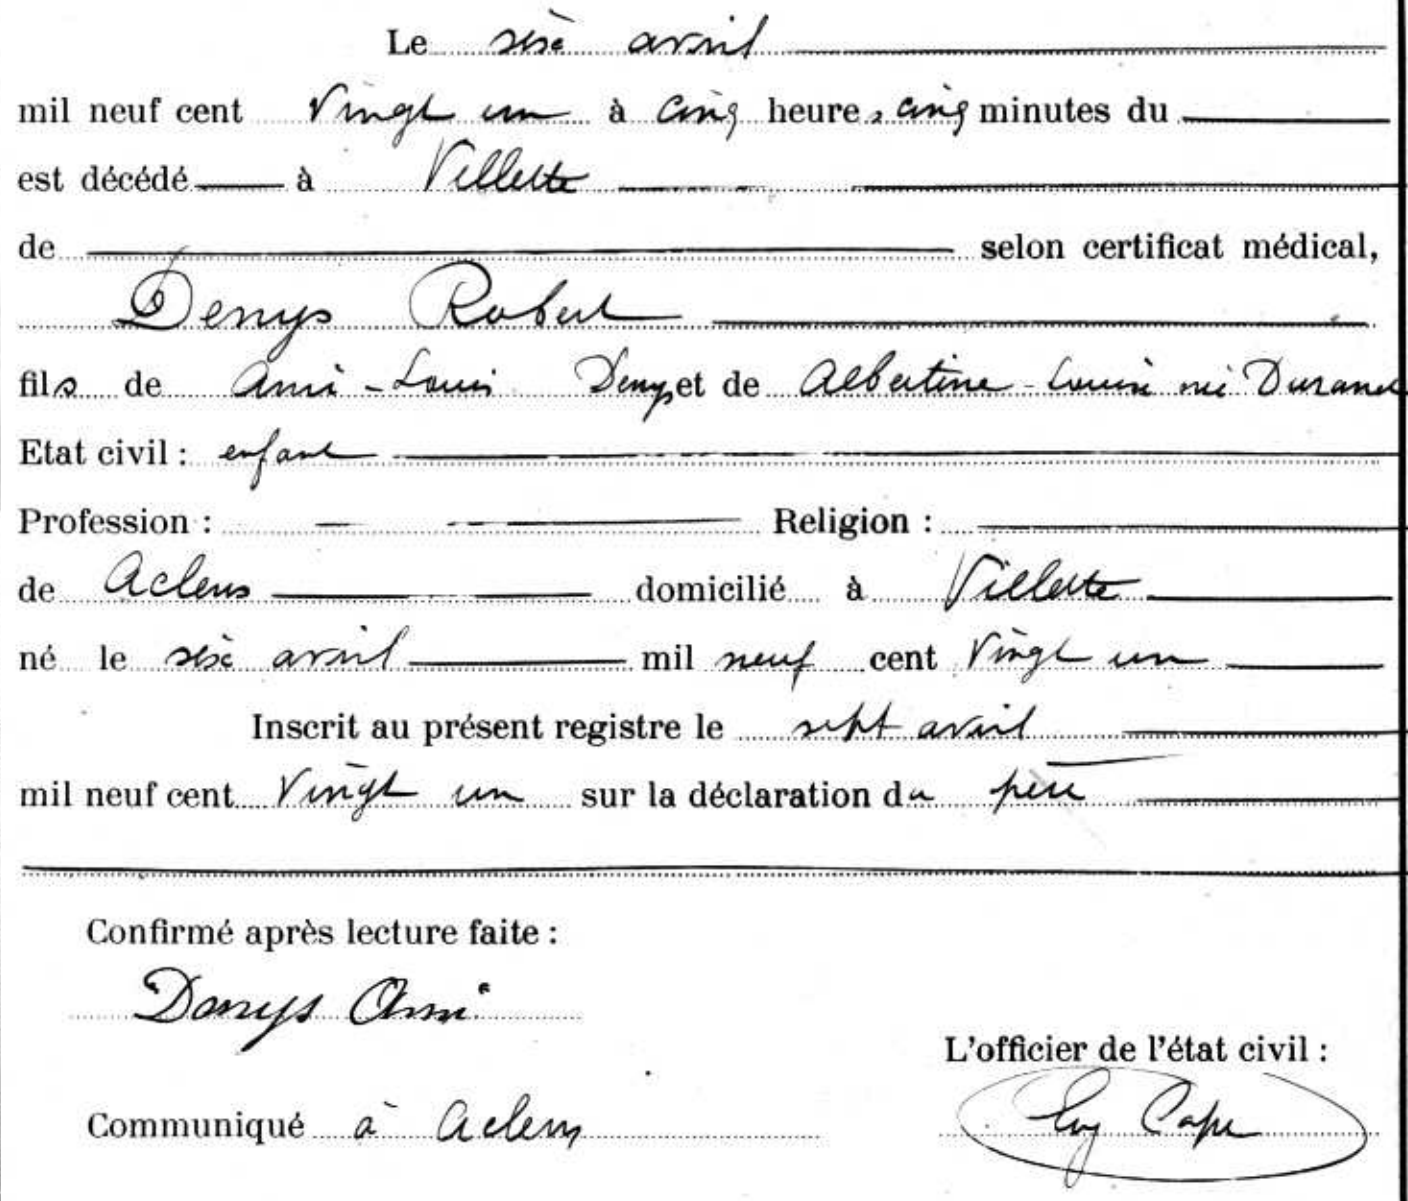 Le avril
mil neuf cent vingt un à cinq heures cinq minutes du
est décédé à Villette
de selon certificat médical,
Denys Robert
fils de Ami-Louis Denys et de Albertine-Louise née Durand
Etat civil : enfant
Profession : Religion :
de Aclens domicilié à Villette
né le avril mil neuf cent vingt un
Inscrit au présent registre le sept avril
mil neuf cent vingt un sur la déclaration du père
Confirmé après lecture faite :
Denys Ami
L'officier de l'état civil :
Communiqué à Aclens